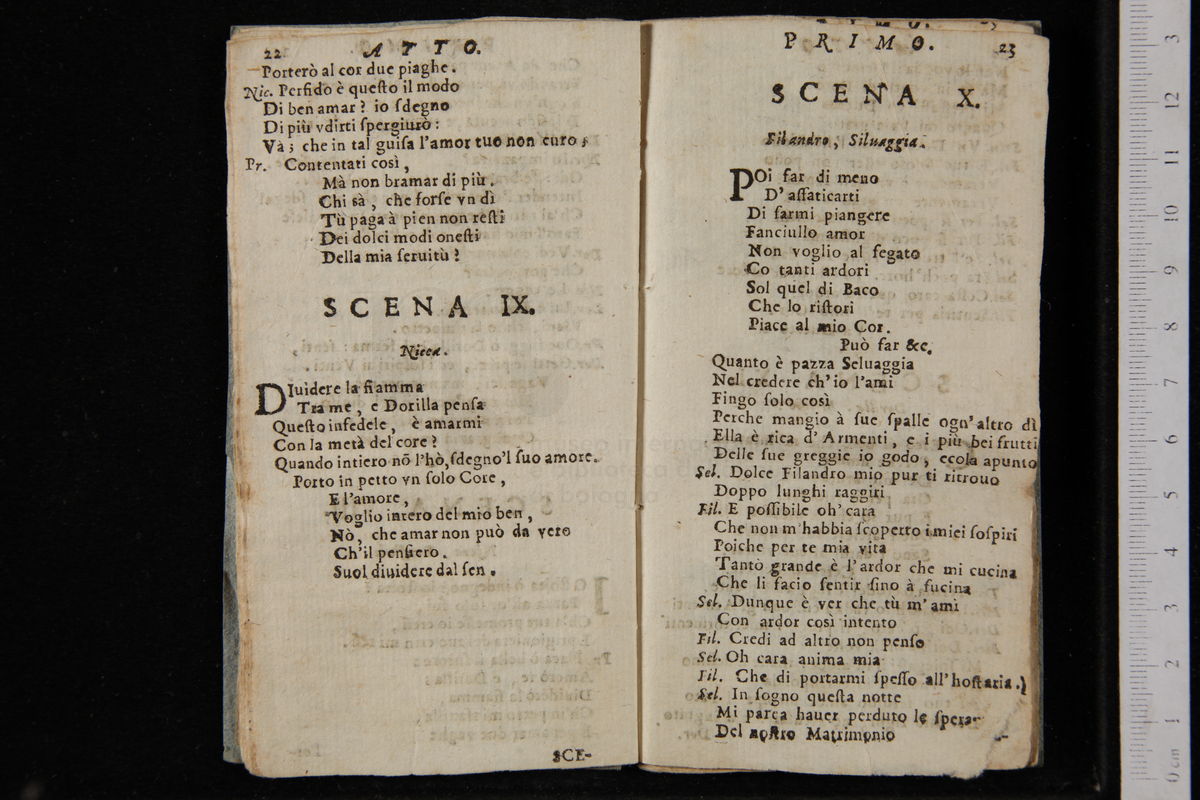 22 ATTO.
Porterò al cor due piaghe.
Nic. Perfido è queſto il modo
Di ben amar? io ſdegno
Di più vdirti ſpergiurò:
Và; che in tal guiſa l'amor tuo non curo;
Pr. Contentati così,
Mà non bramar di più.
Chi sà, che forſe vn dì
Tù paga à pien non reſti
Dei dolci modi oneſti
Della mia ſeruitù?
SCENA IX.
Nicea.
DIuidere la fiamma
Tra me, e Dorilla penſa
Queſto infedele, è amarmi
Con la metà del core?
Quando intiero nõ l'hò, ſdegno'l ſuo amore.
Porto in petto vn ſolo Core,
E l'amore,
Voglio intero del mio ben,
Nò, che amar non può da vero
Ch'il penſiero.
Suol diuidere dal ſen.
SCE-
PRIMO. 23
SCENA X.
Filandro, Siluaggia.
POi far di meno
D'affaticarti
Di farmi piangere
Fanciullo amor
Non voglio al fegato
Co tanti ardori
Sol quel di Baco
Che lo riſtori
Piace al mio Cor.
Può far &c.
Quanto è pazza Seluaggia
Nel credere ch'io l'ami
Fingo ſolo così
Perche mangio à ſue ſpalle ogn'altro dì
Ella è rica d'Armenti, e i più bei frutti
Delle ſue greggie io godo, ecola apunto
Sel. Dolce Filandro mio pur ti ritrouo
Doppo lunghi raggiri
Fil. E poſſibile oh' cara
Che non m'habbia ſcoperto i miei ſoſpiri
Poiche per te mia vita
Tantò grande è l'ardor che mi cucina
Che li facio ſentir ſino à fucina
Sel. Dunque è ver che tù m'ami
Con ardor così intento
Fil. Credi ad altro non penſo
Sel. Oh cara anima mia
Fil. Che di portarmi ſpeſſo all'hoſtaria.)
Sel. In ſogno queſta notte
Mi parea hauer perduto le
Del noſtro Matrimonio